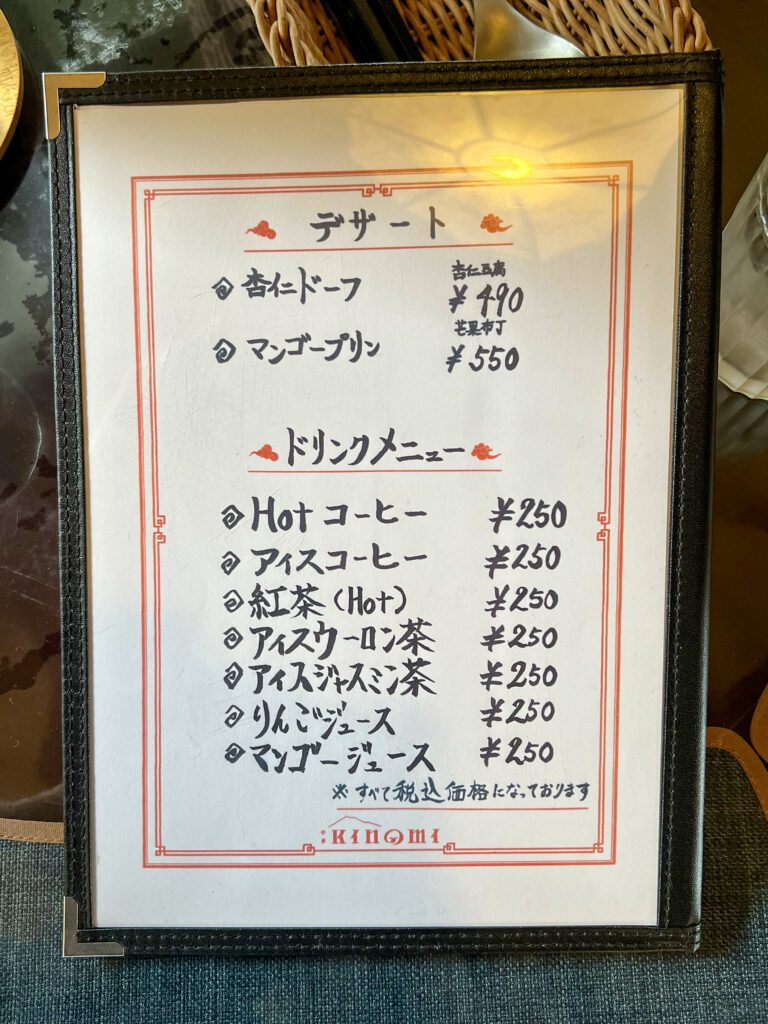 デザート
杏仁豆腐
杏仁ドーフ ¥490
芒果布丁
マンゴープリン ¥550
ドリンクメニュー
Hot コーヒー ¥250
アイスコーヒー ¥250
紅茶(Hot) ¥250
アイスウーロン茶 ¥250
アイスジャスミン茶 ¥250
りんごジュース ¥250
マンゴージュース ¥250
※すべて税込価格になっております
:KINOMI